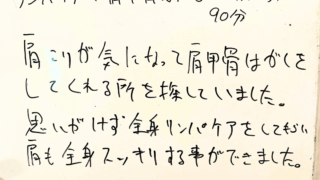 90分
肩こりが気になって肩甲骨はがしを
してくれる所を探していました。
思いがけず全身リンパケアをしてもらい
肩も全身スッキリする事ができました。